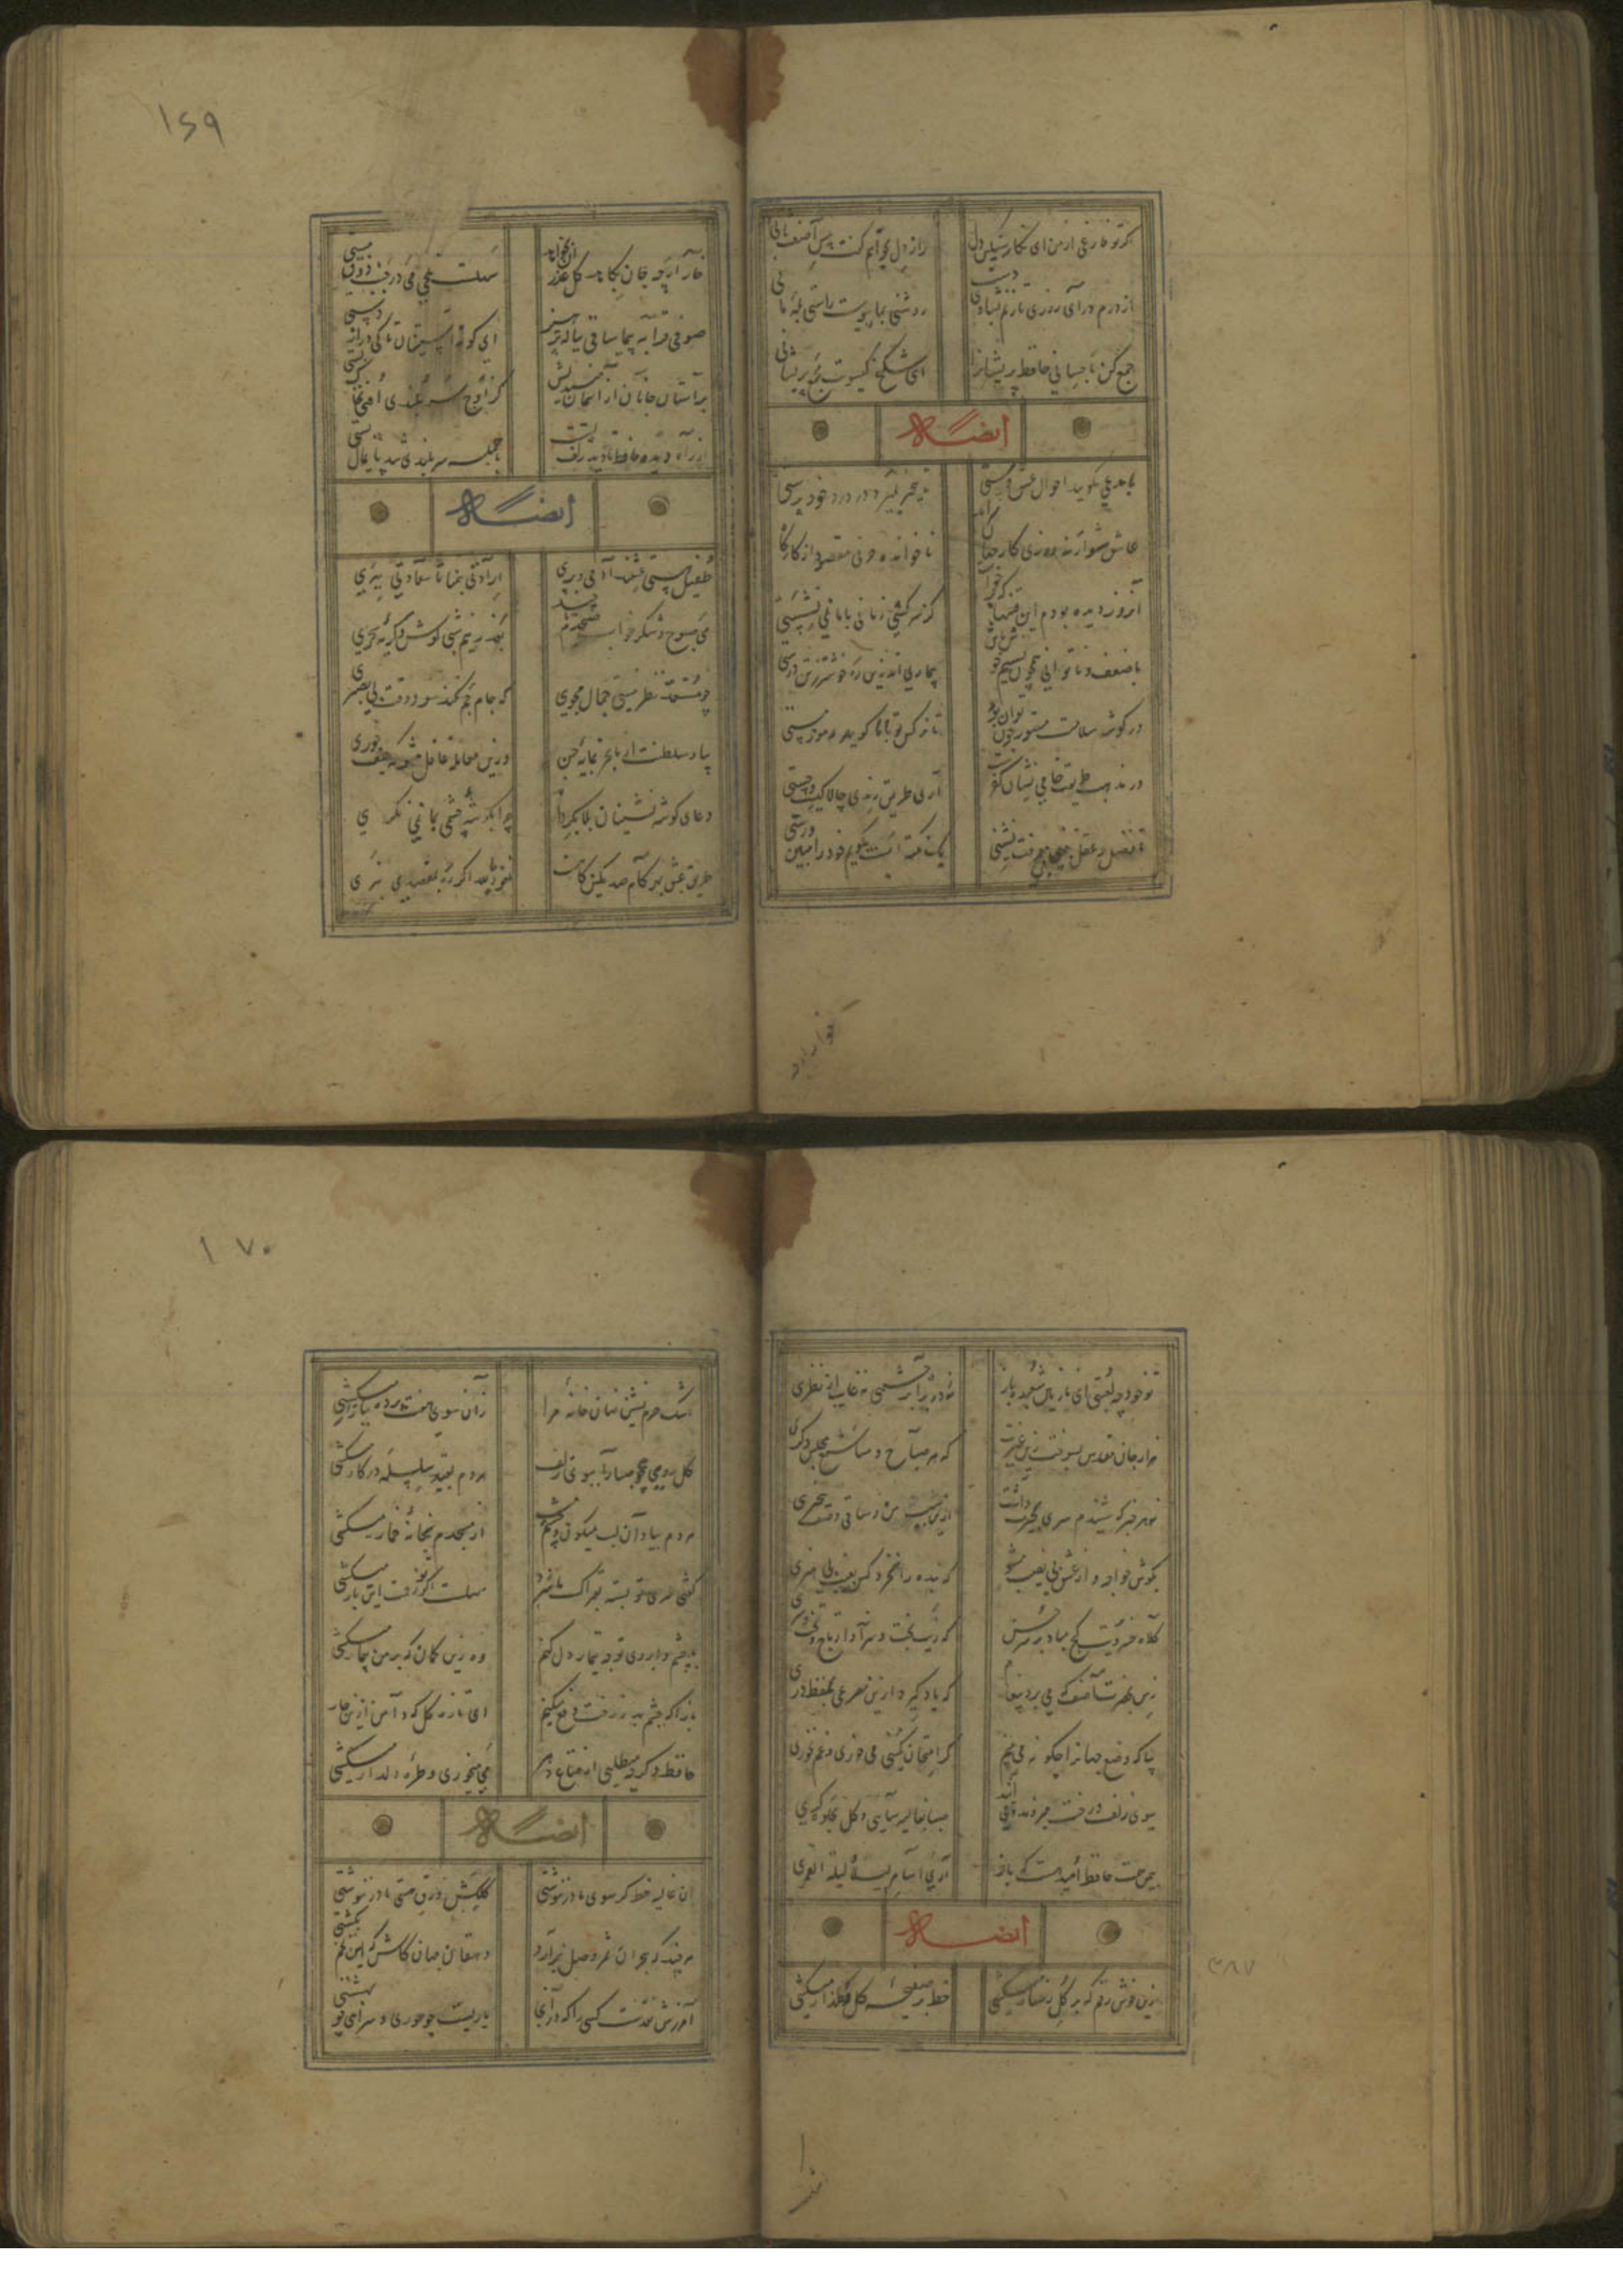 ۱۶۹
کر تو فارغی از من ای نکار سنکین دل رازدل بخواهم گفت پیش آصف ثانی
از درم درآی روزی تازنم بشادی دست
جمع کن باحسانی حافظ پریشانرا ای شکنج کیسویت مجمع پریشانی
ایضا له
با مدعی مگویید احوال عشق و مستی تا بیخبر بمیرد در درد خود پرستی
عاشق شو ار نه روزی کار جهان سراید ناخوانده حرف مقصود از کارگاه
آنروز دیده بودم این فتنها که برخواست کز سرکشی زمانی با ما نمی نشستی
با ضعف و ناتوانی همچون نسیم خوش باش بیماری اندرین ره خوشتر ز تندرستی
در کوشه سلامت مستور چون توان بود تا نرکس تو با ما کوید رموز مستی
در مذهب طریقت خامی نشان کفر است آری طریق رندی چالاکیست و چستی
تا فضل و عقل بینی بی معرفت نشینی یک نکته ات بگویم خود را مبین ورستی
خار ارچه جان بکاهد کل عذر آن بخواهد سهلست تلخی می در جنب ذوق مستی
صوفی پیاله پیما ساقی قرابه پر کن ای کوته آستینان تا کی دراز دستی
بر آستان جانان از آسمان میندیش کز اوج سربلندی افتی بخاک پستی
از راه دیده حافظ تا دید زلف پستت با جمله سربلندی شد پایمال پستی
ایضا له
طفیل هستی عشقند آدمی و پری ارادتی بنما تا سعادتی ببری
می صبوح و شکر خواب صبحدم تا چند بعذر نیم شبی کوش و گریه سحری
چو مستعد نظر نیستی جمال مجوی که جام جم نکند سود وقت بی بصری
بیا و سلطنت از ما بخر بمایه حسن وزین معامله غافل مشو که حیف خوری
دعای کوشه نشینان بلا بگرداند چرا بگوشه چشمی بما نمی نگری
طریق عشق نعوذ بالله اگر ره بمقصدی نبری
۱۷۰
تو خود چه لعبتی ای نازنین شعبده باز نه در برابر چشمی نه غایب از نظری
هزار جان مقدس بسوخت زین غیرت که هر صباح و مسا شمع مجلس دکری
بهر خبر که شنیدم سری بحیرت داشت ازین سپس من و ساقی و بیخبری
بکوش خواجه و از عشق بی نصیب مشو که بنده را نخرد کس بعیب بی هنری
کلاه سروریت کج مباد بر سر حسن که زیب بخت و سزاوار تاج و تخت و سری
زمن بحضرت آصف که می برد پیغام که یاد گیر دو مصرعی بلفظ دری
بیا که وضع جهانرا چگونه می بینم کر امتحان کنی می خوری و غم نخوری
ببوی زلف و رخت می روند و می آیند صبا بغالیه سایی و کل بجلوه گری
بیمن همت حافظ امید هست که باز اری اسامر لیلة القمری
ایضا له
زین خوش رقم که بر کل رخسار میکشی خط بر صحیفه کل و کلزار میکشی
اشک حرم نشین نهان خانه مرا زآن سوی هفت پرده ببازار میکشی
کاهل روی چو صبا را ببوی زلف هر دم بقید سلسله در کار میکشی
هر دم بیاد آن لب میکون و چشم مست از مسجدم بخانه خمار میکشی
گفتی سر تو بسته فتراک ما شود سهلست اگر زحمت این بار میکشی
با چشم و ابروی تو چه تدبیر دل کنم وه زین کمان که بر من بیمار میکشی
بازآ که چشم بد ز رخت دفع میکنم ای تازه کل که دامن ازین خار میکشی
حافظ دکر چه میطلبی از نعیم دهر می میخوری و طره دلدار میکشی
ایضا له
آن غالیه خط کر سوی ما نامه نوشتی کردون ورق هستی ما در ننوشتی
هر چند که هجران ثمر وصل برآرد دهقان جهان کاش که این تخم نکشتی
آمرزش نقدست کسی را که درینجا یاریست چو حوری و سرای چو بهشتی
۳۸۷